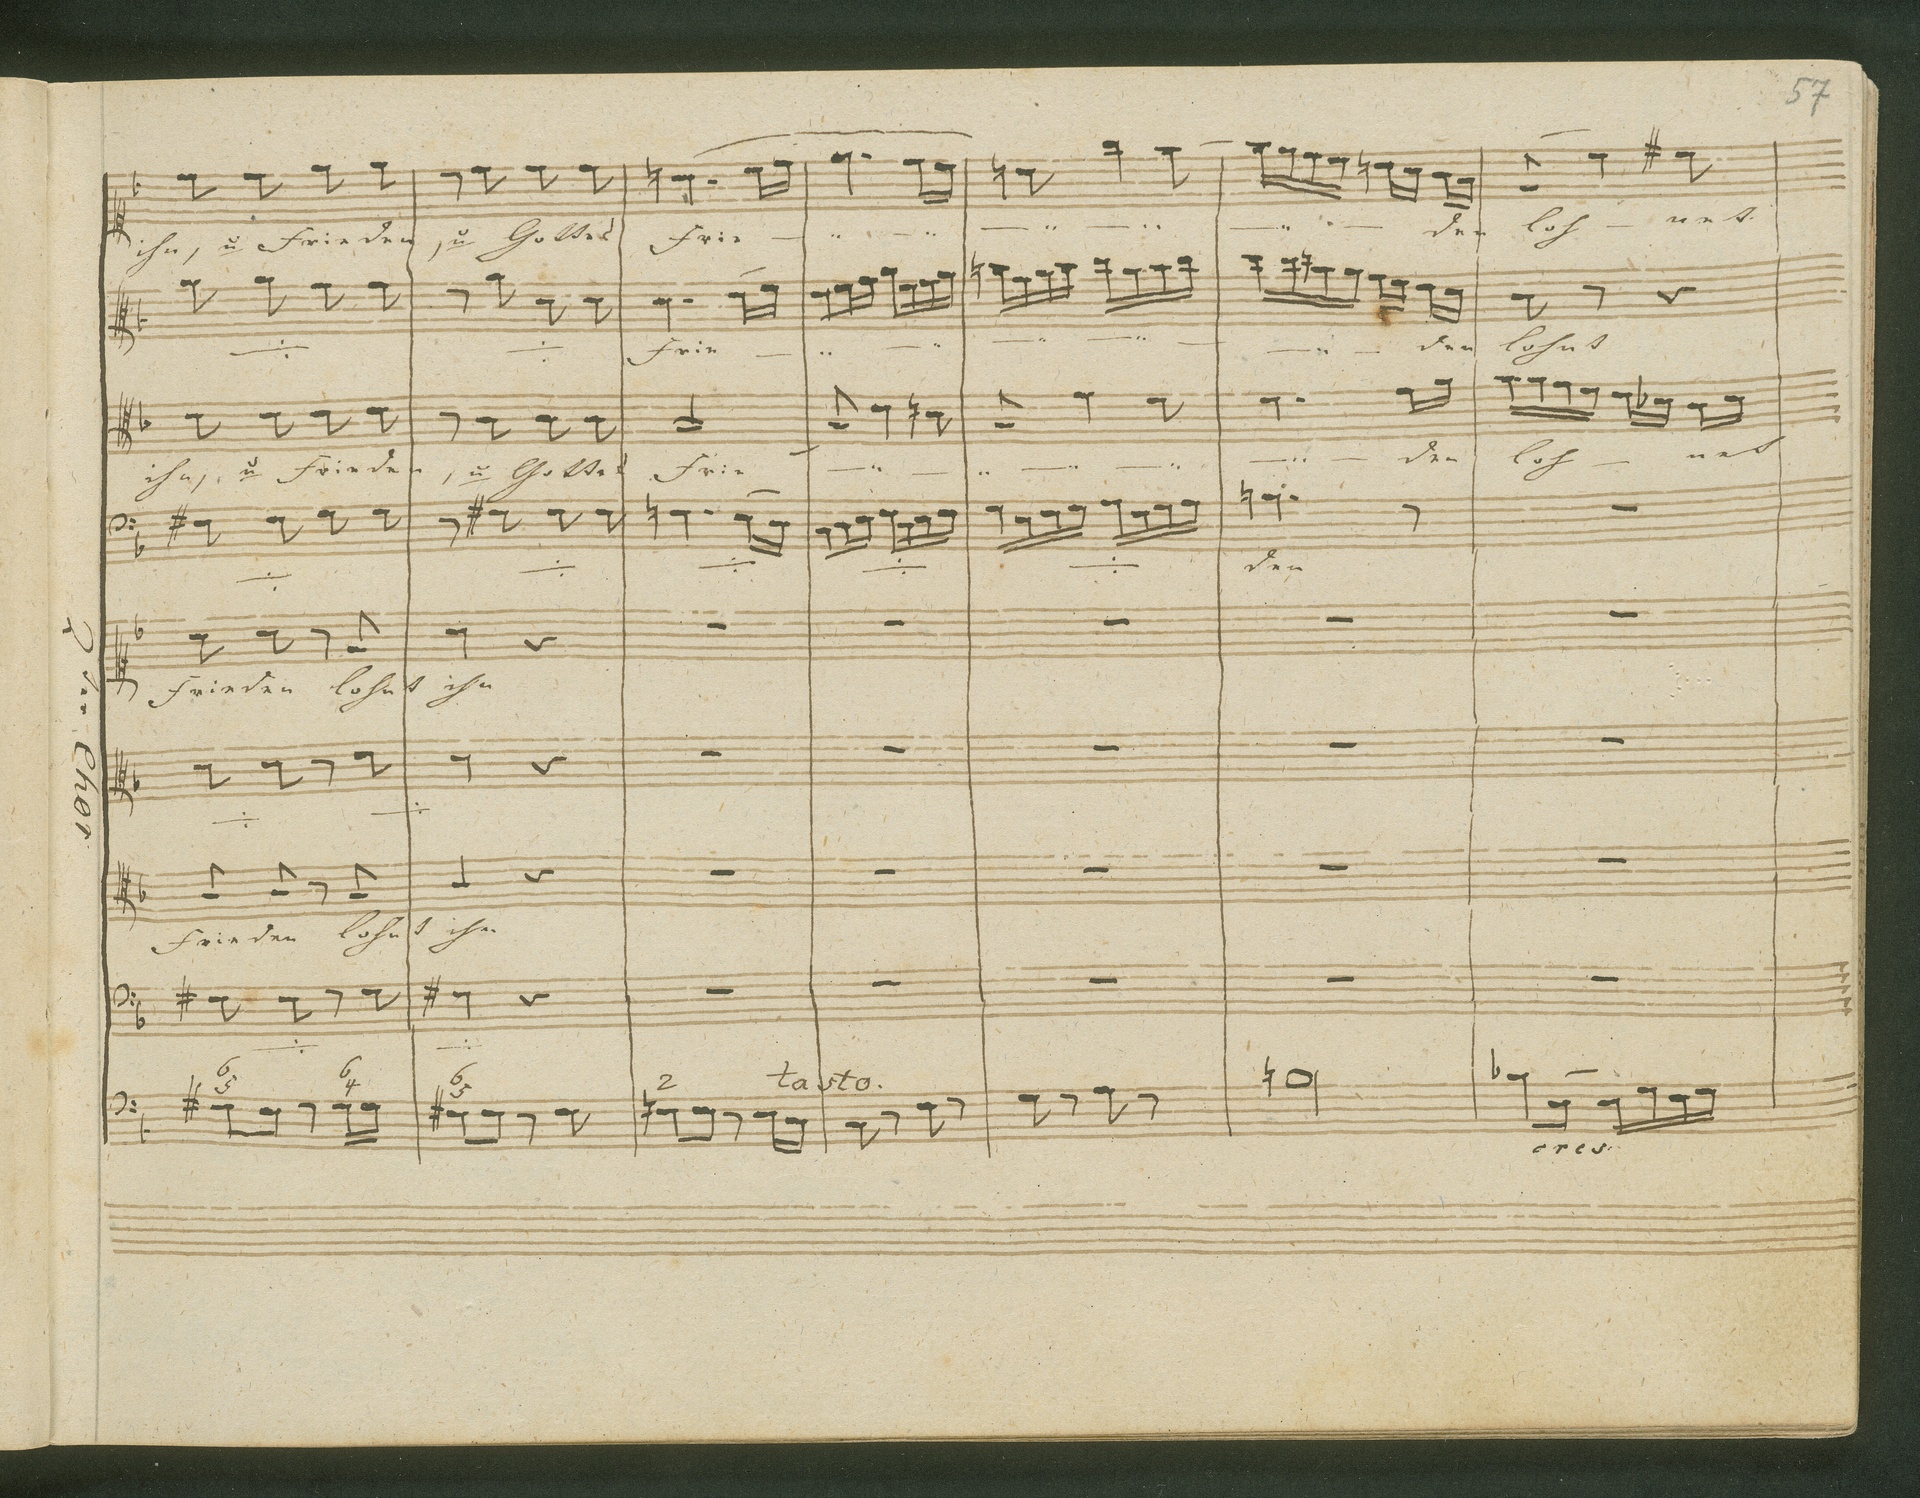 57
ihn, u Frieden, u Gottes Frie — den loh — net
Frie — den lohnt
ihn, u Frieden, u Gottes Frie — den loh — net
den
2ter Chor
Frieden lohnt ihn
Frieden lohnt ihn
6 6 6
5 4 5 2 tasto.
cres.